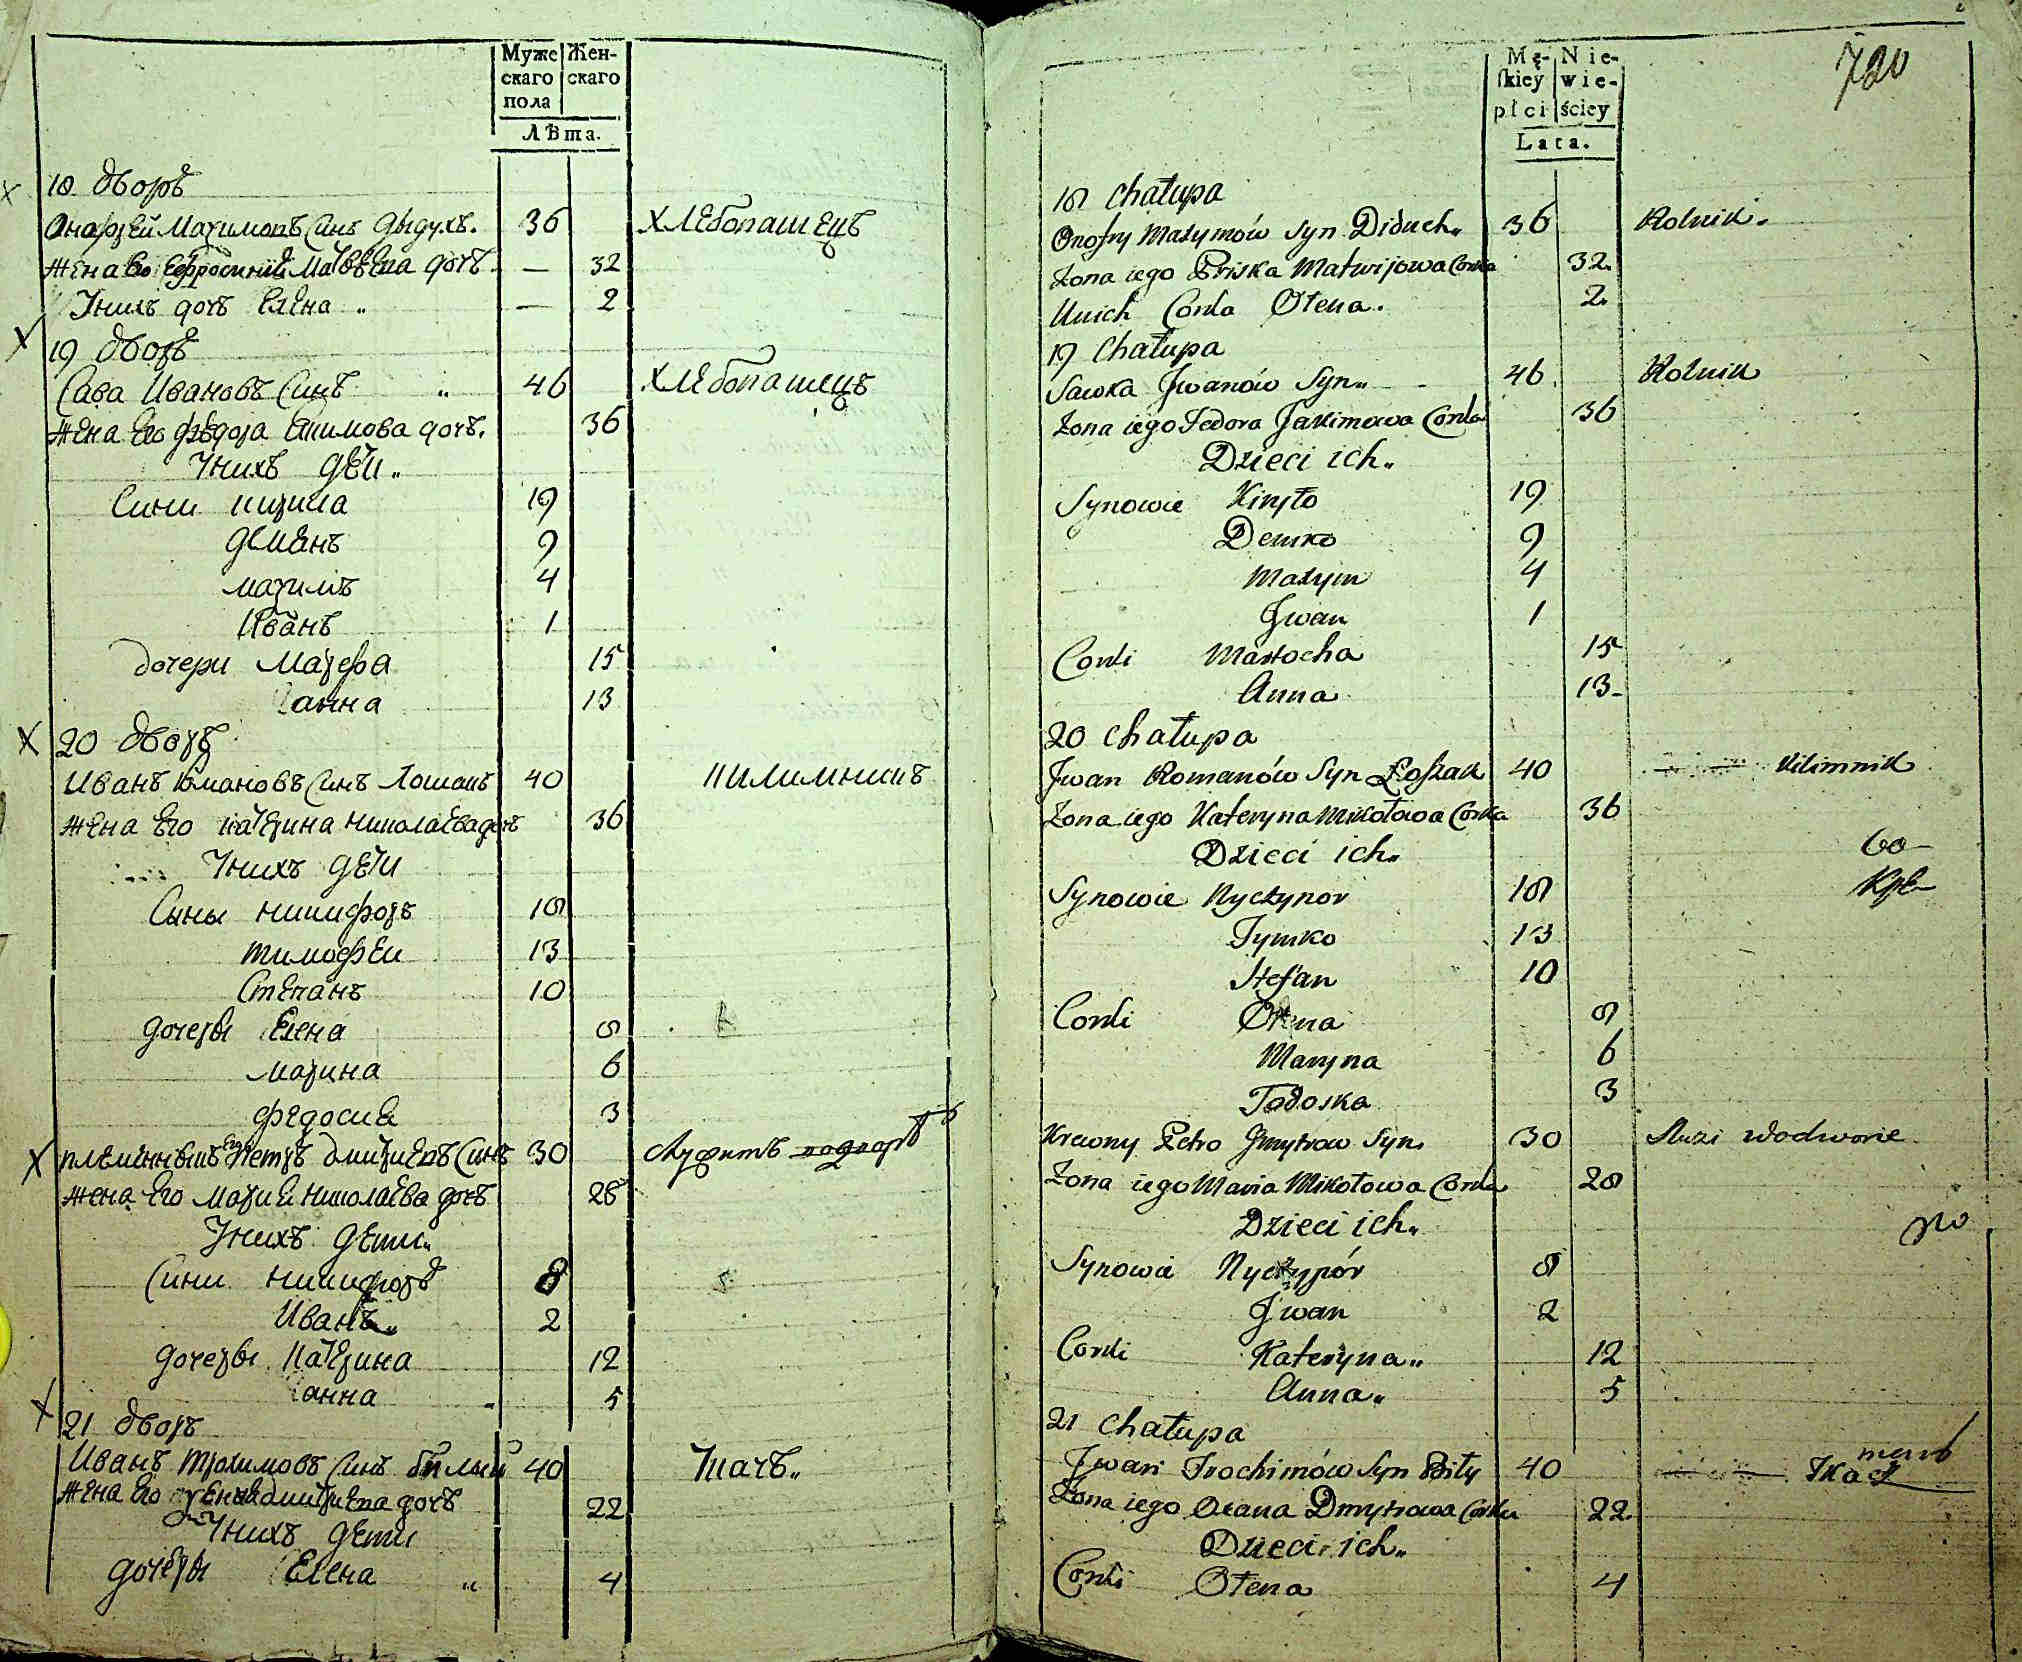 Муже Жен-
скаго скаго
пола
Лѣта.
18 дворъ
Онофрей Мазимовъ Синъ Дыдухъ. 36 хлебопашецъ
жена Его Ефросиния Матвѣева дочъ. — 32
Унихъ дочъ Елена „ — 2
19 дворъ
Сава Ивановъ Синъ „ 46 хлебопашецъ
жена Его Федора Екимова дочъ. 36
Унихъ дѣти „
Сини Кирила 19
демянъ 9
мазимъ 4
Иванъ 1
дочери Мазефа 15
анна 13
20 дворъ
Иванъ Романовъ Синъ Лошакъ 40 килимникъ
жена Его катерина николаева дочъ 36
Унихъ дѣти
Сыны никифоръ 18
тимофеи 13
Степанъ 10
дочеры Елена 8
марина 6
федосия 3
племенныкъ Его Петръ дмитриевъ Синъ 30 служитъ
жена Его Мария николаева дочъ 28
Унихъ дети„
Сини никифоръ 8
Иванъ„ 2
дочеры катерина 12
анна 5
21 дворъ
Иванъ трохимовъ Синъ билый 40 Ткачъ„
жена Его дмитриева дочъ 22
Унихъ дети
дочеры Елена „ 4
720
Mę- Nie-
ſkiey wie-
płci ściey
Lata.
18 Chałupa
Onofry Maxymów Syn Diduch„ 36 Rolnik.
Zona iego Priska Matwijowa Corka 32.
Unich Corka Ołena. 2.
19 Chałupa
Sawka Jwanów Syn„ 46 Rolnik
Zona iego Fedora Jakimowa Corka 36
Dzieci ich„
Synowie Kiryło 19
Demko 9
Maxym 4
Jwan 1
Corki Mastocha 15
Anna 13
20 Chałupa
Jwan Romanów Syn Łoſzak 40 Kilimnik
Zona iego Kateryna Mikołowa Corka 36
Dzieci ich„
Synowie Nyczypor 18
Tymko 13
Stefan 10
Corki Ołena 8
Maryna 6
Todoska 3
Krewny Petro Dmytrow Syn 30 Służi wodworie
Zona iego Maria Mikołowa Corka 28
Dzieci ich„
Synowie Nyczypór 8
Jwan 2
Corki Kateryna„ 12
Anna„ 5
21 Chałupa
Jwan Trochimów Syn Biły 40 Tkacz
Zona iego Oxana Dmytrowa Corka 22.
Dzieci ich„
Corki Ołena 4